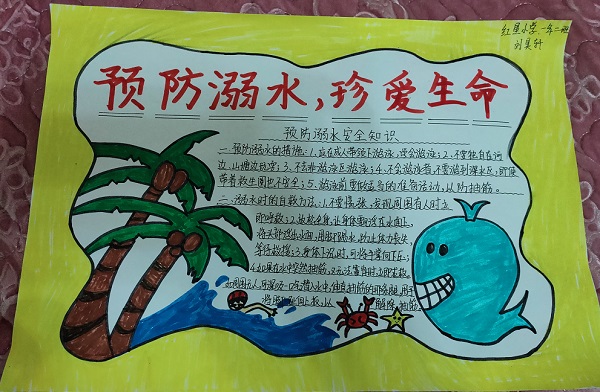 红星小学一年二班
预防溺水,珍爱生命
预防溺水安全知识
一、预防溺水的措施:1.应在成人带领下游泳,学会游泳;2.不要独自在河
边、山塘边玩耍;3.不去非游泳区游泳;4.不会游泳者,不要游到深水区,即使
带着救生圈也不安全;5.游泳前要做适当的准备活动,以防抽筋。
二、溺水时的自救方法:1.不要慌张,发现周围有人时立
即呼救;2.放松全身,让身体漂浮在水面上,
将头部浮出水面,用脚踢水,防止体力丧失,
等待救援;3.身体下沉时,可将手掌向下压;
4.如果在水中突然抽筋,又无法靠岸时,立即求救。